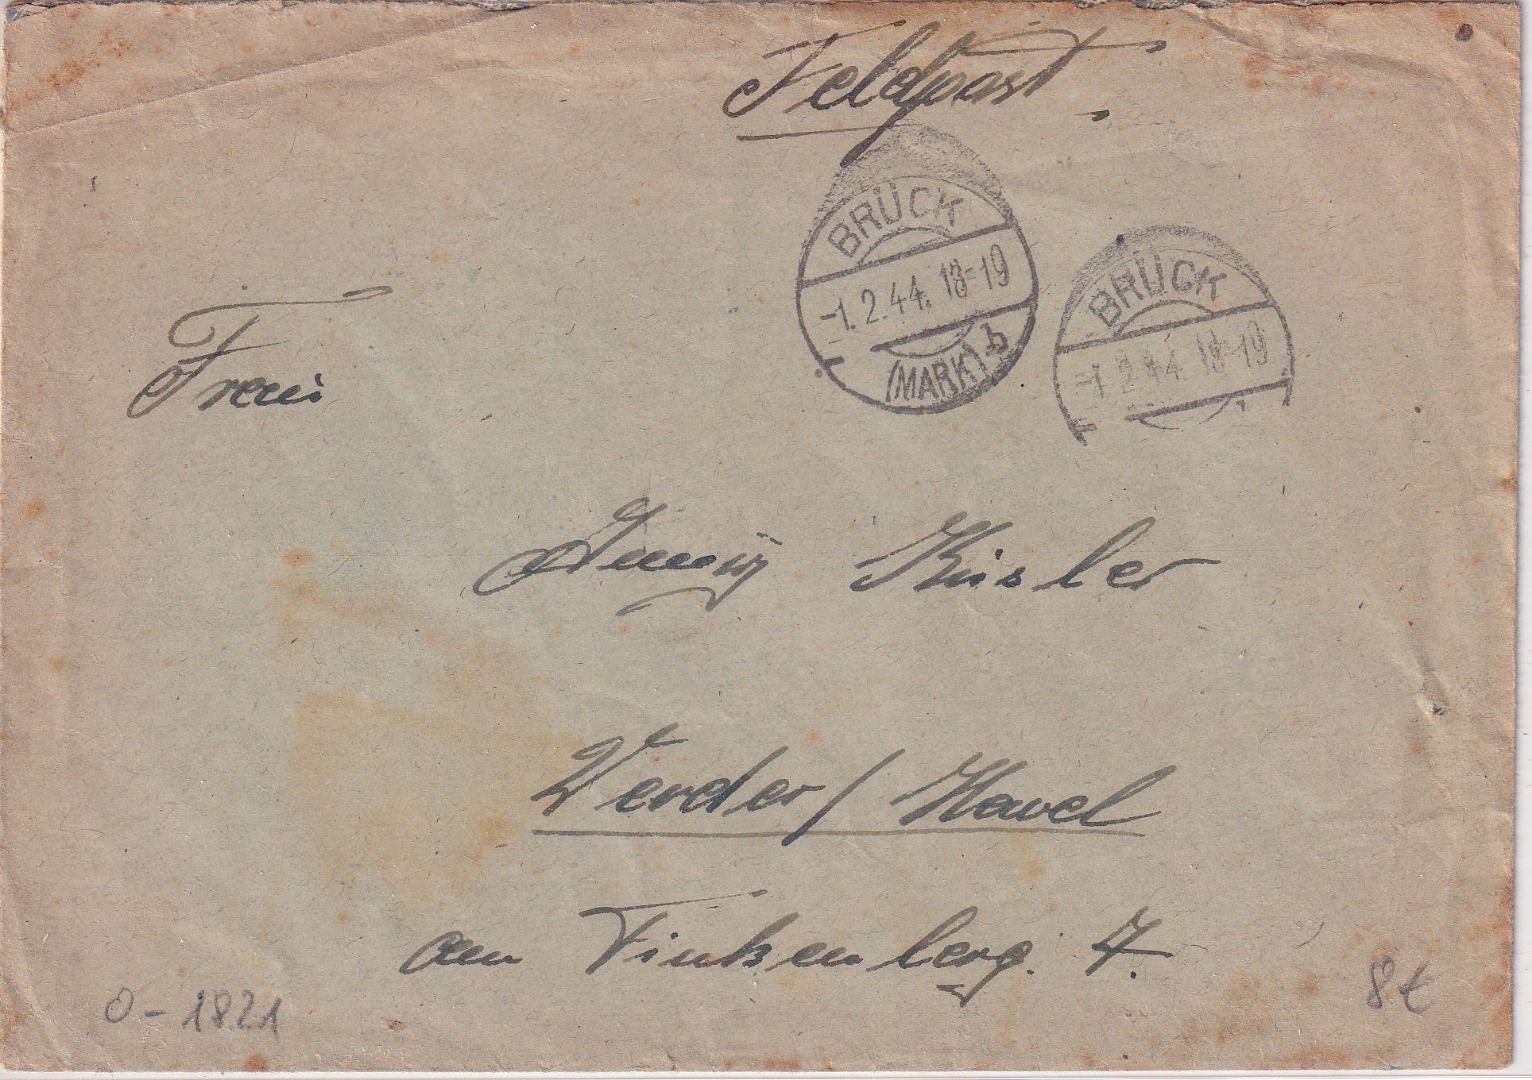 Feldpost.
BRÜCK
-1.2.44.18-19
(MARK) b
BRÜCK
-1.2.44.18-19
Frau
Anny Kisler
Werder/Havel
am Finkenberg. 7.
O-1821
8€